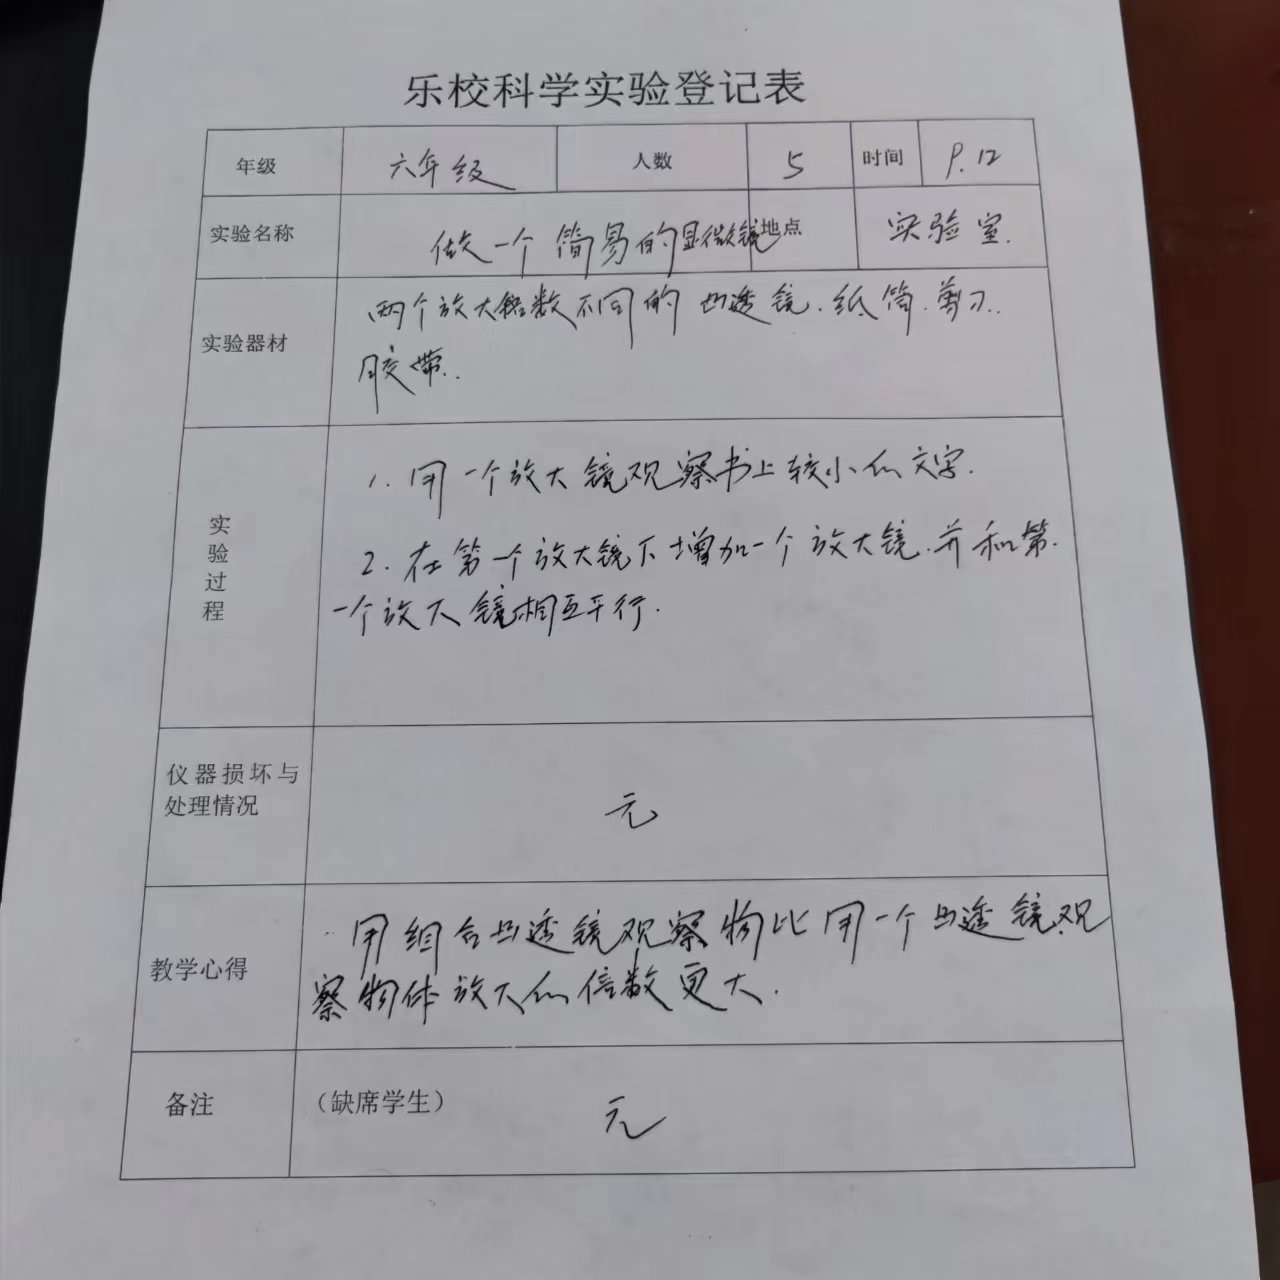 乐校科学实验登记表
年级 六年级 人数 5 时间 9.12
实验名称 做一个简易的显微镜 地点 实验室.
实验器材 两个放大倍数不同的凸透镜.纸筒.剪刀.
胶带.
实验过程
1.用一个放大镜观察书上较小的文字.
2.在第一个放大镜下增加一个放大镜.并和第
一个放大镜相互平行.
仪器损坏与
处理情况
无
教学心得
用组合凸透镜观察物比用一个凸透镜观
察物体放大的倍数更大.
备注 (缺席学生) 无